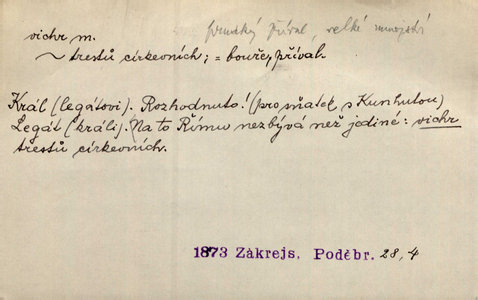 vichr m. prudký příval, velké množství
~ trestů církevních; = bouře, příval.
Král (legátovi). Rozhodnuto! (pro sňatek s Kunhutou)
Legát (králi). Na to Římu nezbývá než jediné: vichr
trestů církevních.
1873 Zákrejs, Poděbr. 28,4